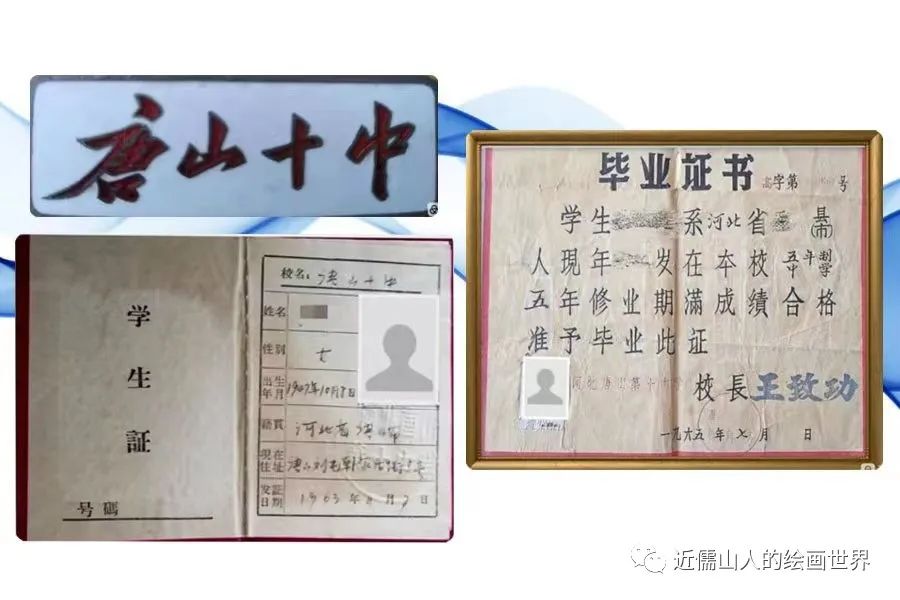 唐山十中
学生証
号碼
校名：唐山十中
姓名
性别 女
出生年月 1947年10月8日
籍貫 河北省唐山市
現在住址
发証日期 1963年 月 日
毕业证书
高字第 号
学生 系河北省 县(市)
人現年 岁在本校五年制中学
五年修业期满成績合格
准予毕业此证
校長王致功
一九六五年七月 日
近儒山人的绘画世界